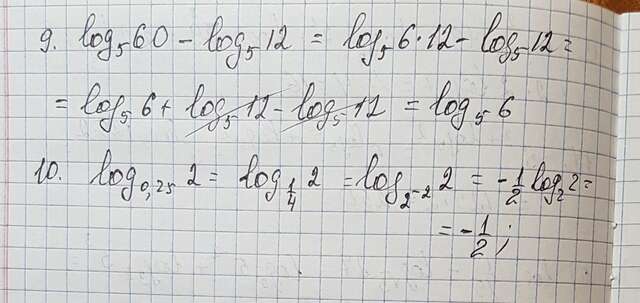 9. log₅60 - log₅12 = log₅6·12 - log₅12 =
= log₅6 + log₅12 - log₅12 = log₅6
10. log₀,₂₅2 = log_{1/4}2 = log_{2⁻²}2 = -1/2 log₂2 =
= -1/2;